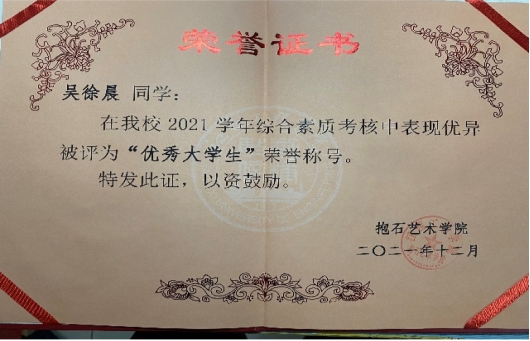 荣誉证书
吴徐晨 同学：
在我校 2021 学年综合素质考核中表现优异
被评为“优秀大学生”荣誉称号。
特发此证，以资鼓励。
抱石艺术学院
二〇二一年十二月